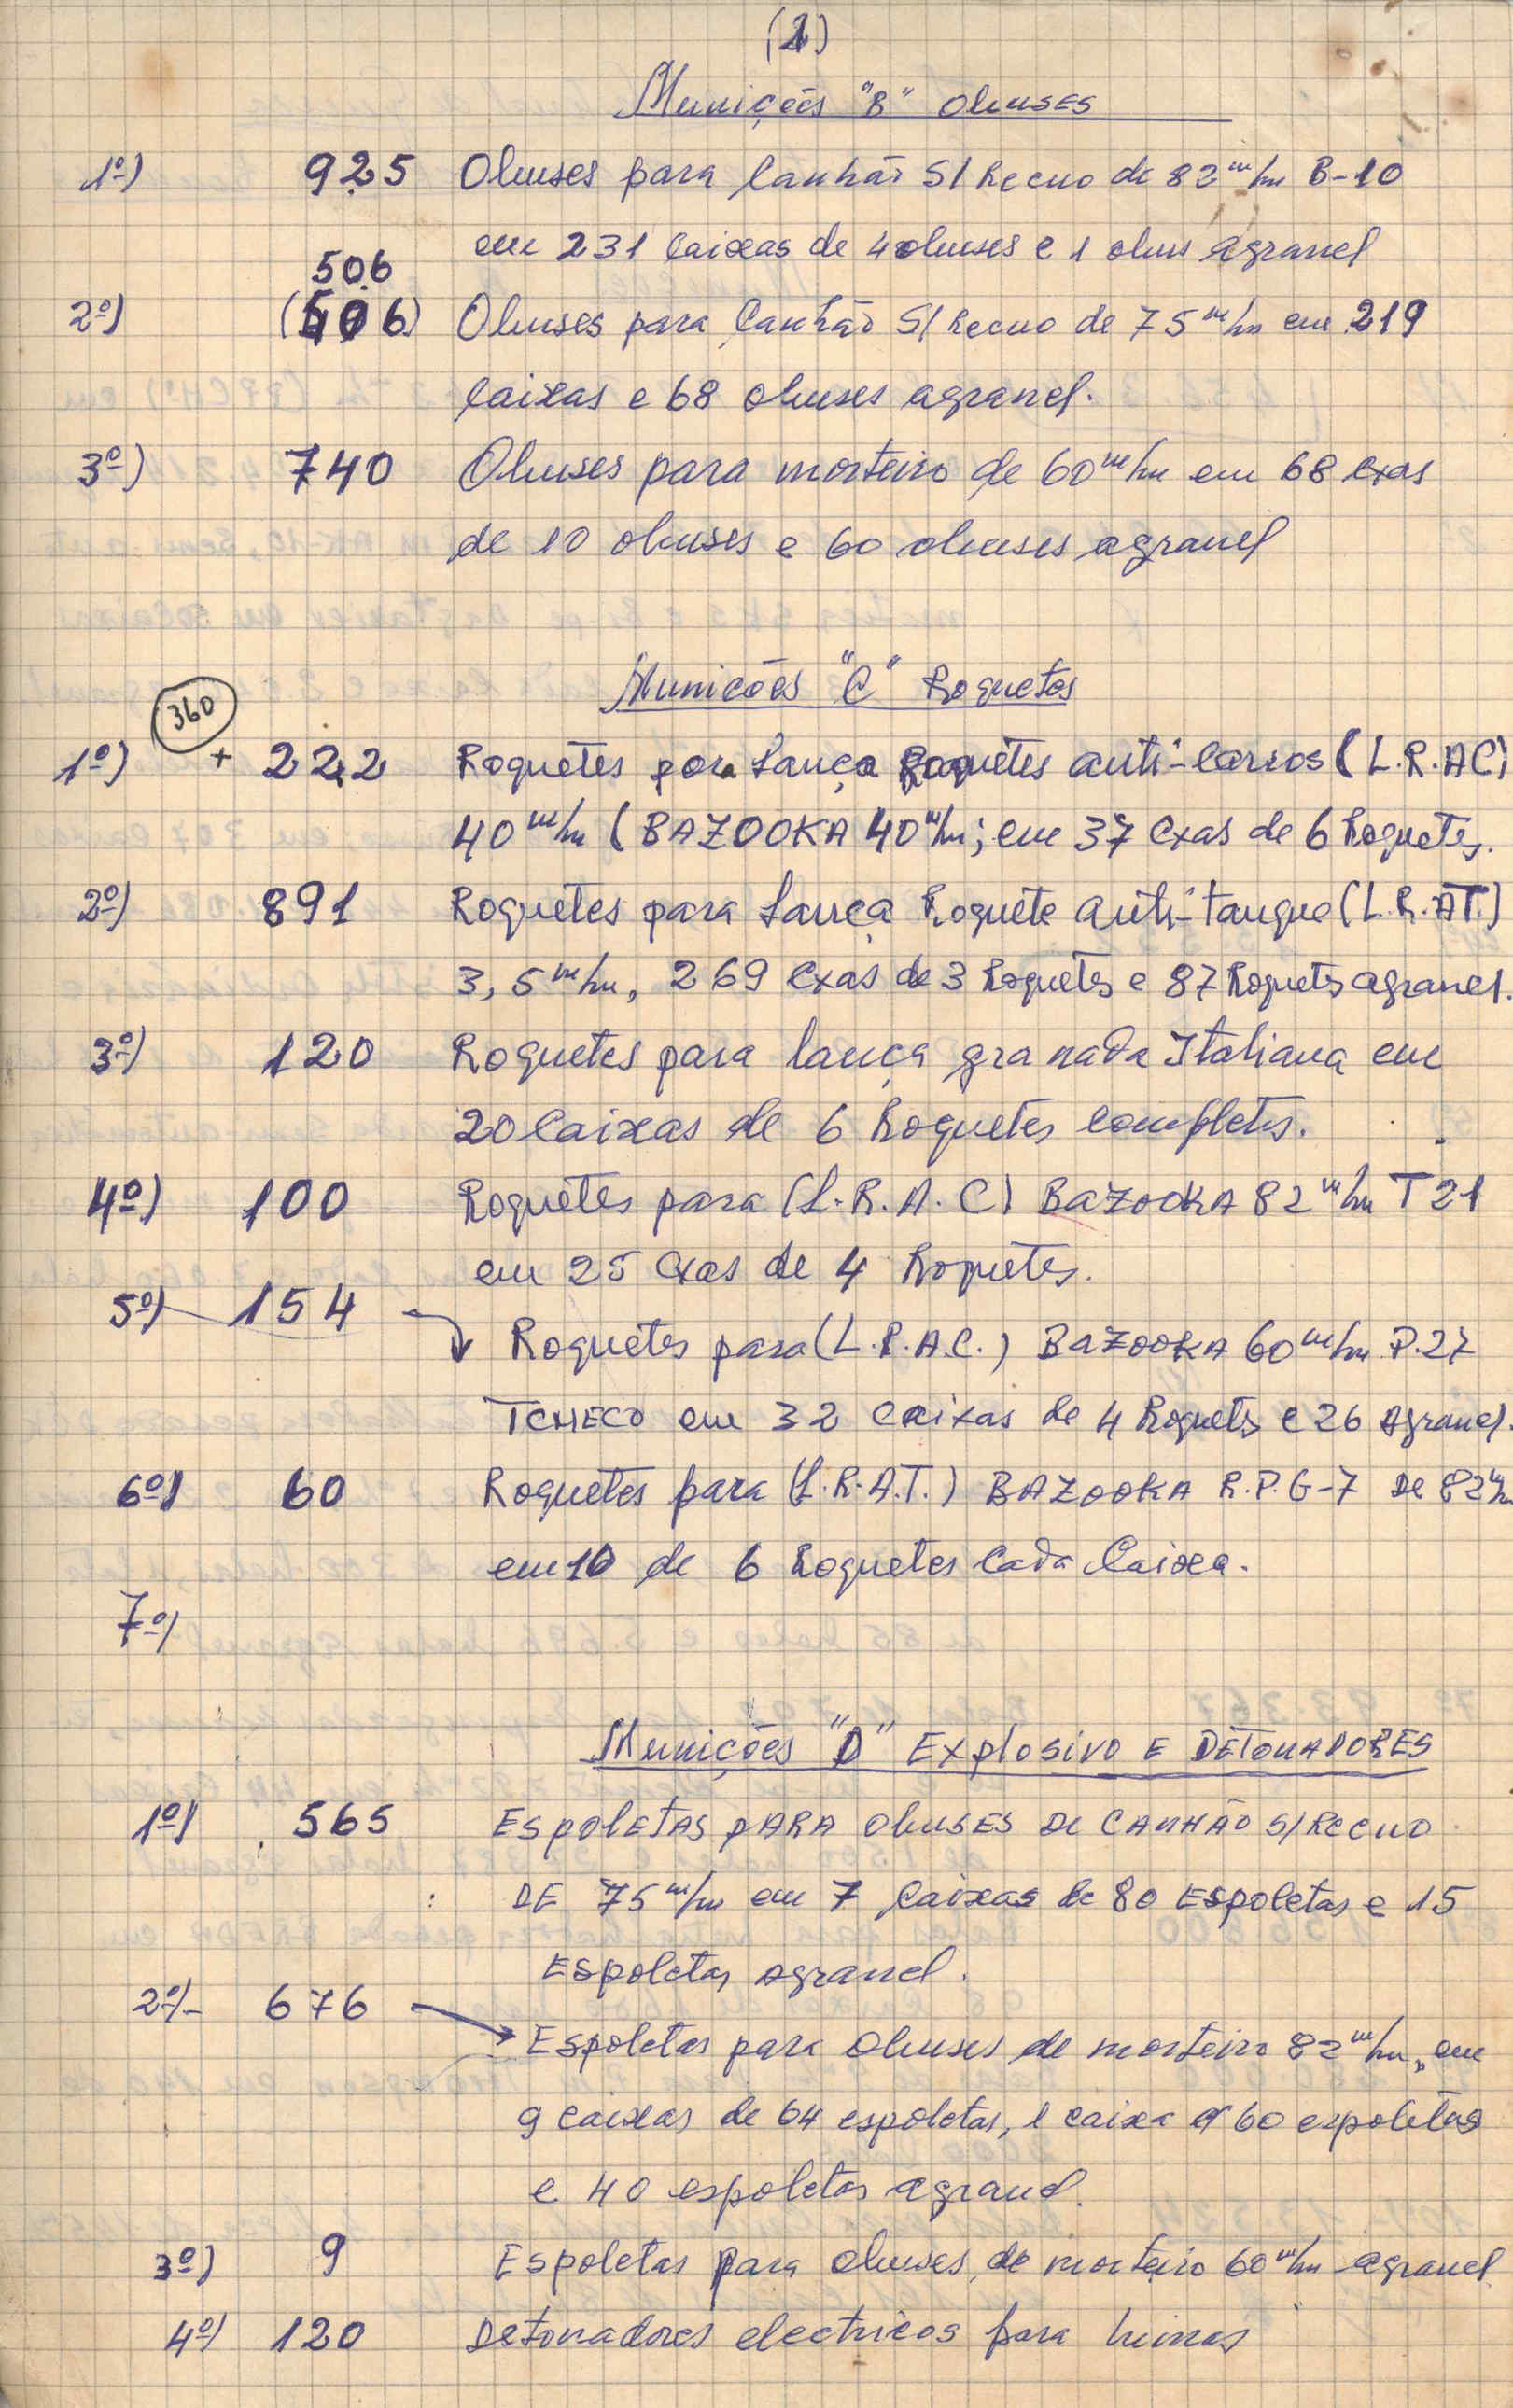 (1)
Munições "B" Obuses
1º) 925 Obuses para Canhão S/ Recuo de 82 m/m B-10
em 231 Caixas de 4 obuses e 1 obus agranel
506
2º) (506) Obuses para Canhão S/ Recuo de 75 m/m em 219
Caixas e 68 obuses agranel.
3º) 740 Obuses para morteiro de 60 m/m em 68 Cxas
de 10 obuses e 60 obuses agranel
Municões "C" Roquetes
360
1º) + 222 Roquetes para Lança Roquetes anti-Carros (L.R.AC)
40 m/m (BAZOOKA 40 m/m; em 37 Cxas de 6 Roquetes.
2º) 891 Roquetes para Lança Roquete anti-tanque (L.R.AT.)
3,5 m/m, 269 Cxas de 3 Roquetes e 87 Roquets agranel.
3º) 120 Roquetes para lança granada Italiana em
20 Caixas de 6 Roquetes completos.
4º) 100 Roquetes para (L.R.A.C) BAZOOKA 82 m/m T 21
em 25 Cxas de 4 Roquetes.
5º) 154
Roquetes para (L.R.A.C.) BAZOOKA 60 m/m P.27
TCHECO em 32 Caixas de 4 Roquets e 26 Agranel.
6º) 60 Roquetes para (L.R.A.T.) BAZOOKA R.P.G-7 de 82 m/m
em 10 de 6 Roquetes Cada Caixa.
7º)
Munições "D" Explosivo E DETONADORES
1º) 565 ESPOLETAS PARA ObUSES De CANHÃO S/RECUO
DE 75 m/m em 7 Caixas de 80 Espoletas e 15
Espoletas agranel.
2º)- 676
Espoletas para Obuses de morteiro 82 m/m, em
9 caixas de 64 espoletas, 1 caixa 60 espoletas
e 40 espoletas agranel.
3º) 9 Espoletas para obuses de morteiro 60 m/m agranel
4º) 120 Detonadores electricos para minas